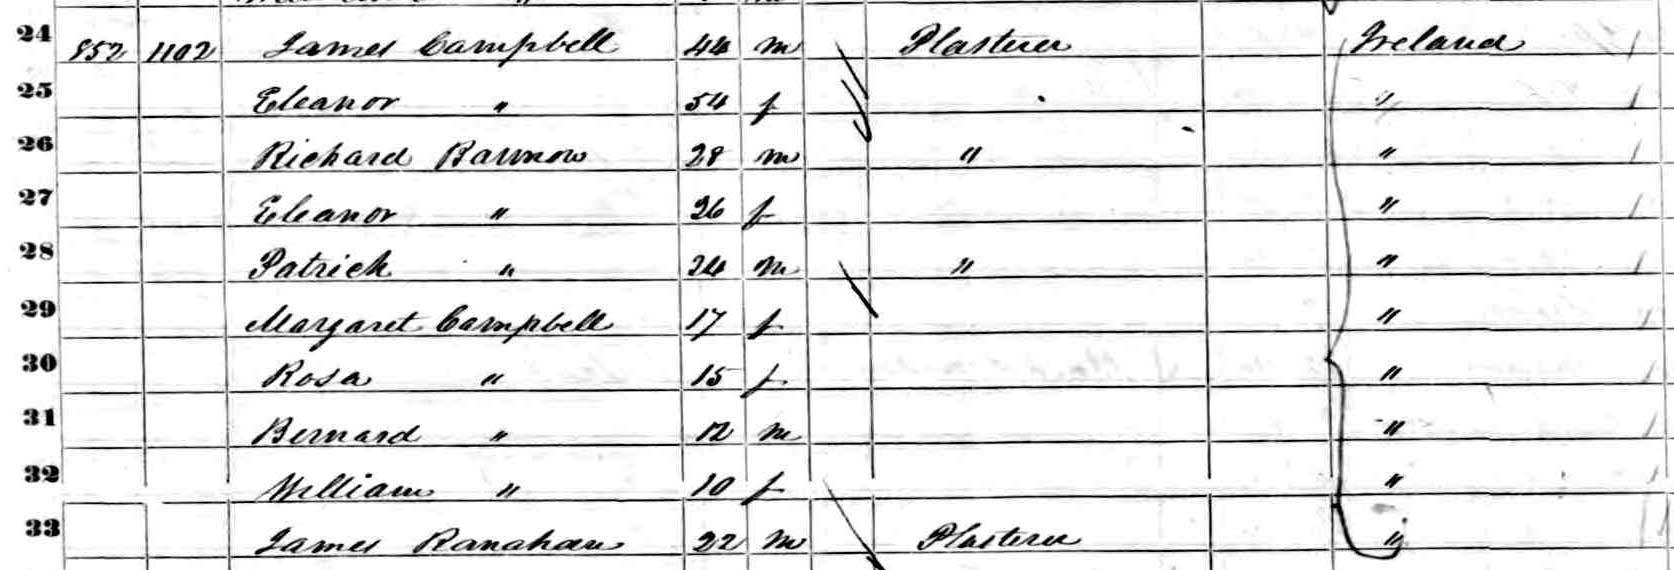 24 852 1102 James Campbell 44 m Plasterer Ireland
25 Eleanor " 54 f "
26 Richard Barnow 28 m " "
27 Eleanor " 26 f "
28 Patrick " 24 m " "
29 Margaret Campbell 17 f "
30 Rosa " 15 f "
31 Bernard " 12 m "
32 William " 10 f "
33 James Ranahan 22 m Plasterer "